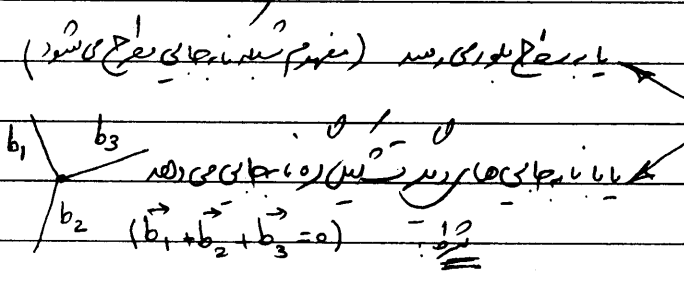 یا به سطح بلور می رسد (مفهوم شبکه نابجایی مطرح می شود)
یا با نابجایی های دیگر تشکیل گره نابجایی می دهد
b₁ b₃
b₂
شرط: (b⃗₁ + b⃗₂ + b⃗₃ = 0)